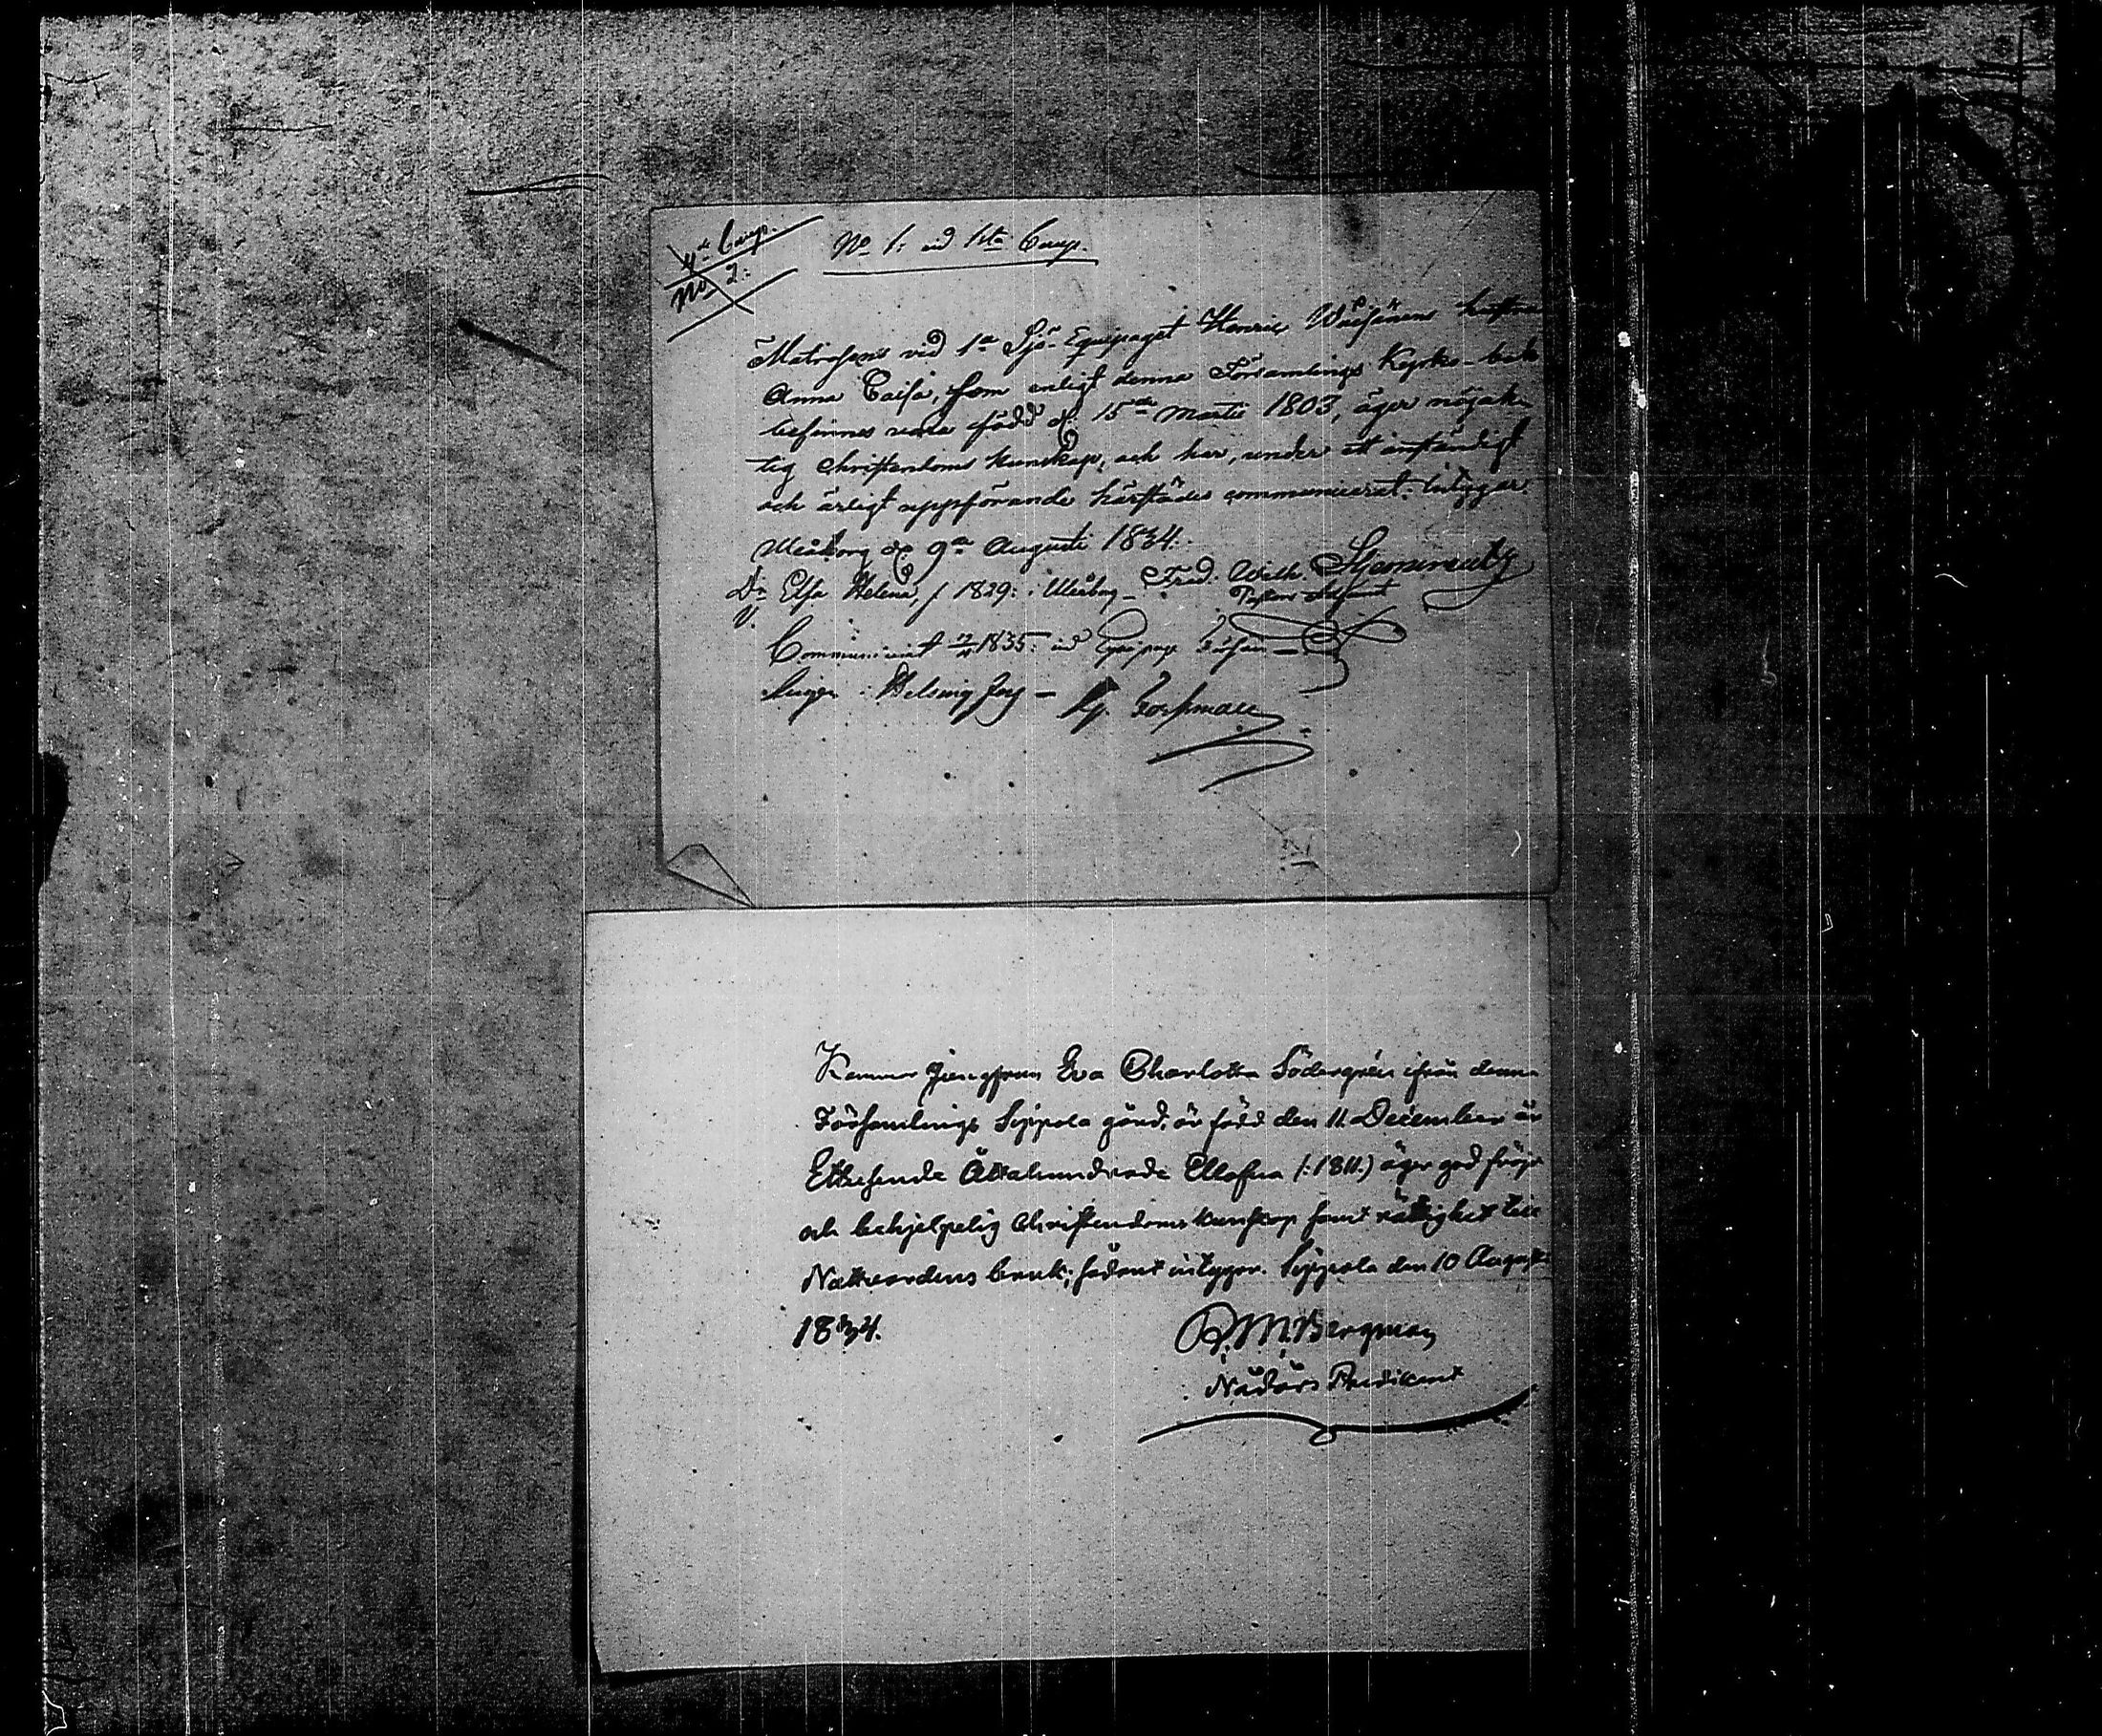 4de Comp.
No 2:
No 1: vid 1sta Comp.
Matrosens vid 1a Sjö-Equipaget Henric Wäisänens hustru
Anna Caisa, som enligt denna Församlings Kyrko-bok
befinnes vara född d. 15de Martii 1803, äger nöjak-
tig Christendoms kunskap, och har, under ett anständigt
och ärligt uppförande härstädes communicerat: intygar.
Uleåborg d. 9de Augusti 1834.
Dr Elsa Helena, f 1829: i Uleåborg - Fred. Wilh.
Pastors Adjunct
Communicerat 1835: vid Equipage Försam-
lingen i Helsingfors -
Kammar Jungfrun Eva Charlotta Södergrén ifrån denna
Församlings Sippola gård, är född den 11. December år
Ettusende Åttahundrade Ellofva (:1811.) äger god frägd
och behjelpelig Christendomskunskap samt rättighet till
Nattvardens bruk; sådant intygar. Sippola den 10 Augusti
1834.
Bergman
Nådårs Predikant